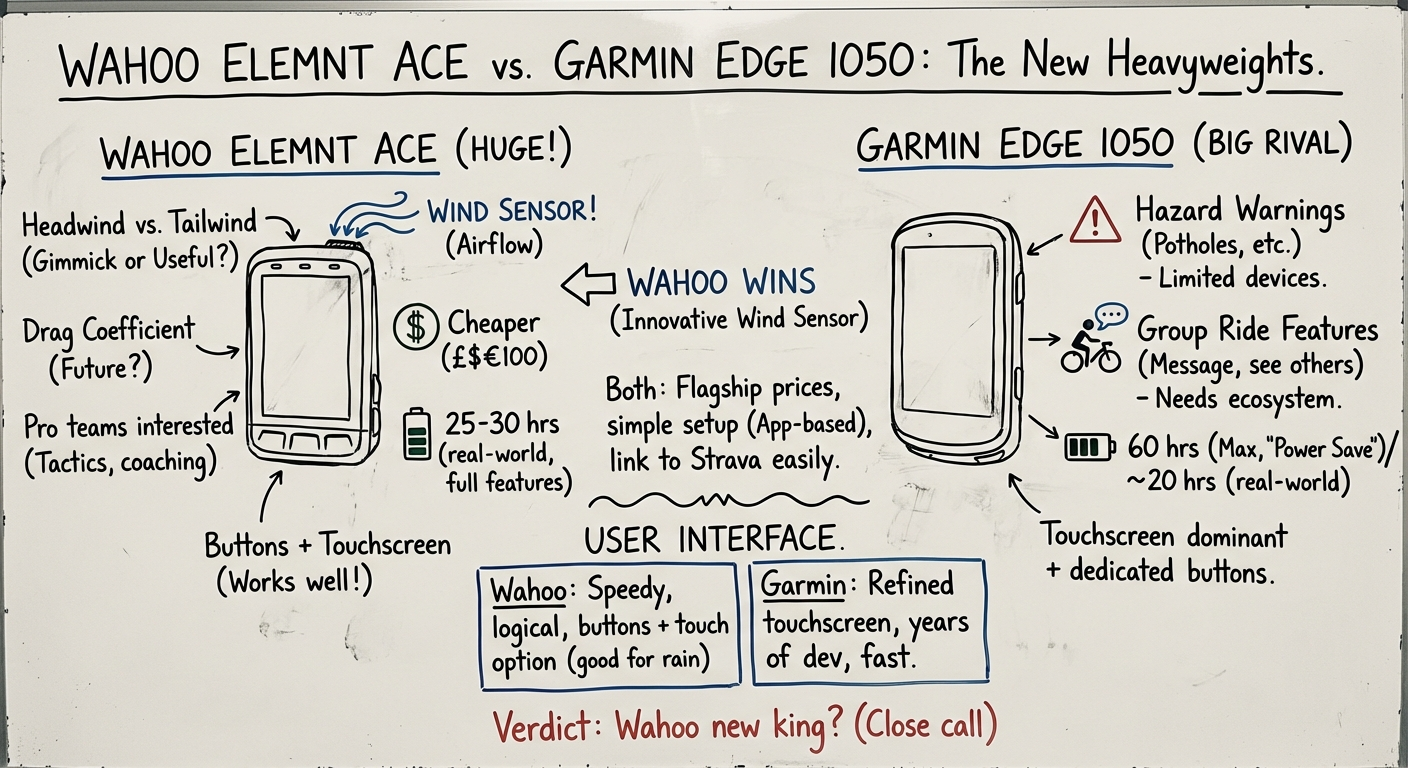 WAHOO ELEMNT ACE vs. GARMIN EDGE 1050: The New Heavyweights.
WAHOO ELEMNT ACE (HUGE!)
Headwind vs. Tailwind
(Gimmick or Useful?)
WIND SENSOR!
(Airflow)
Drag Coefficient
(Future?)
$ Cheaper
(£$€100)
Pro teams interested
(Tactics, coaching)
25-30 hrs
(real-world,
full features)
Buttons + Touchscreen
(Works well!)
WAHOO WINS
(Innovative Wind Sensor)
Both: Flagship prices,
simple setup (App-based),
link to Strava easily.
GARMIN EDGE 1050 (BIG RIVAL)
! Hazard Warnings
(Potholes, etc.)
- Limited devices.
Group Ride Features
(Message, see others)
- Needs ecosystem.
60 hrs (Max, "Power Save")/
~20 hrs (real-world)
Touchscreen dominant
+ dedicated buttons.
USER INTERFACE.
Wahoo: Speedy,
logical, buttons + touch
option (good for rain)
Garmin: Refined
touchscreen, years
of dev, fast.
Verdict: Wahoo new king? (Close call)